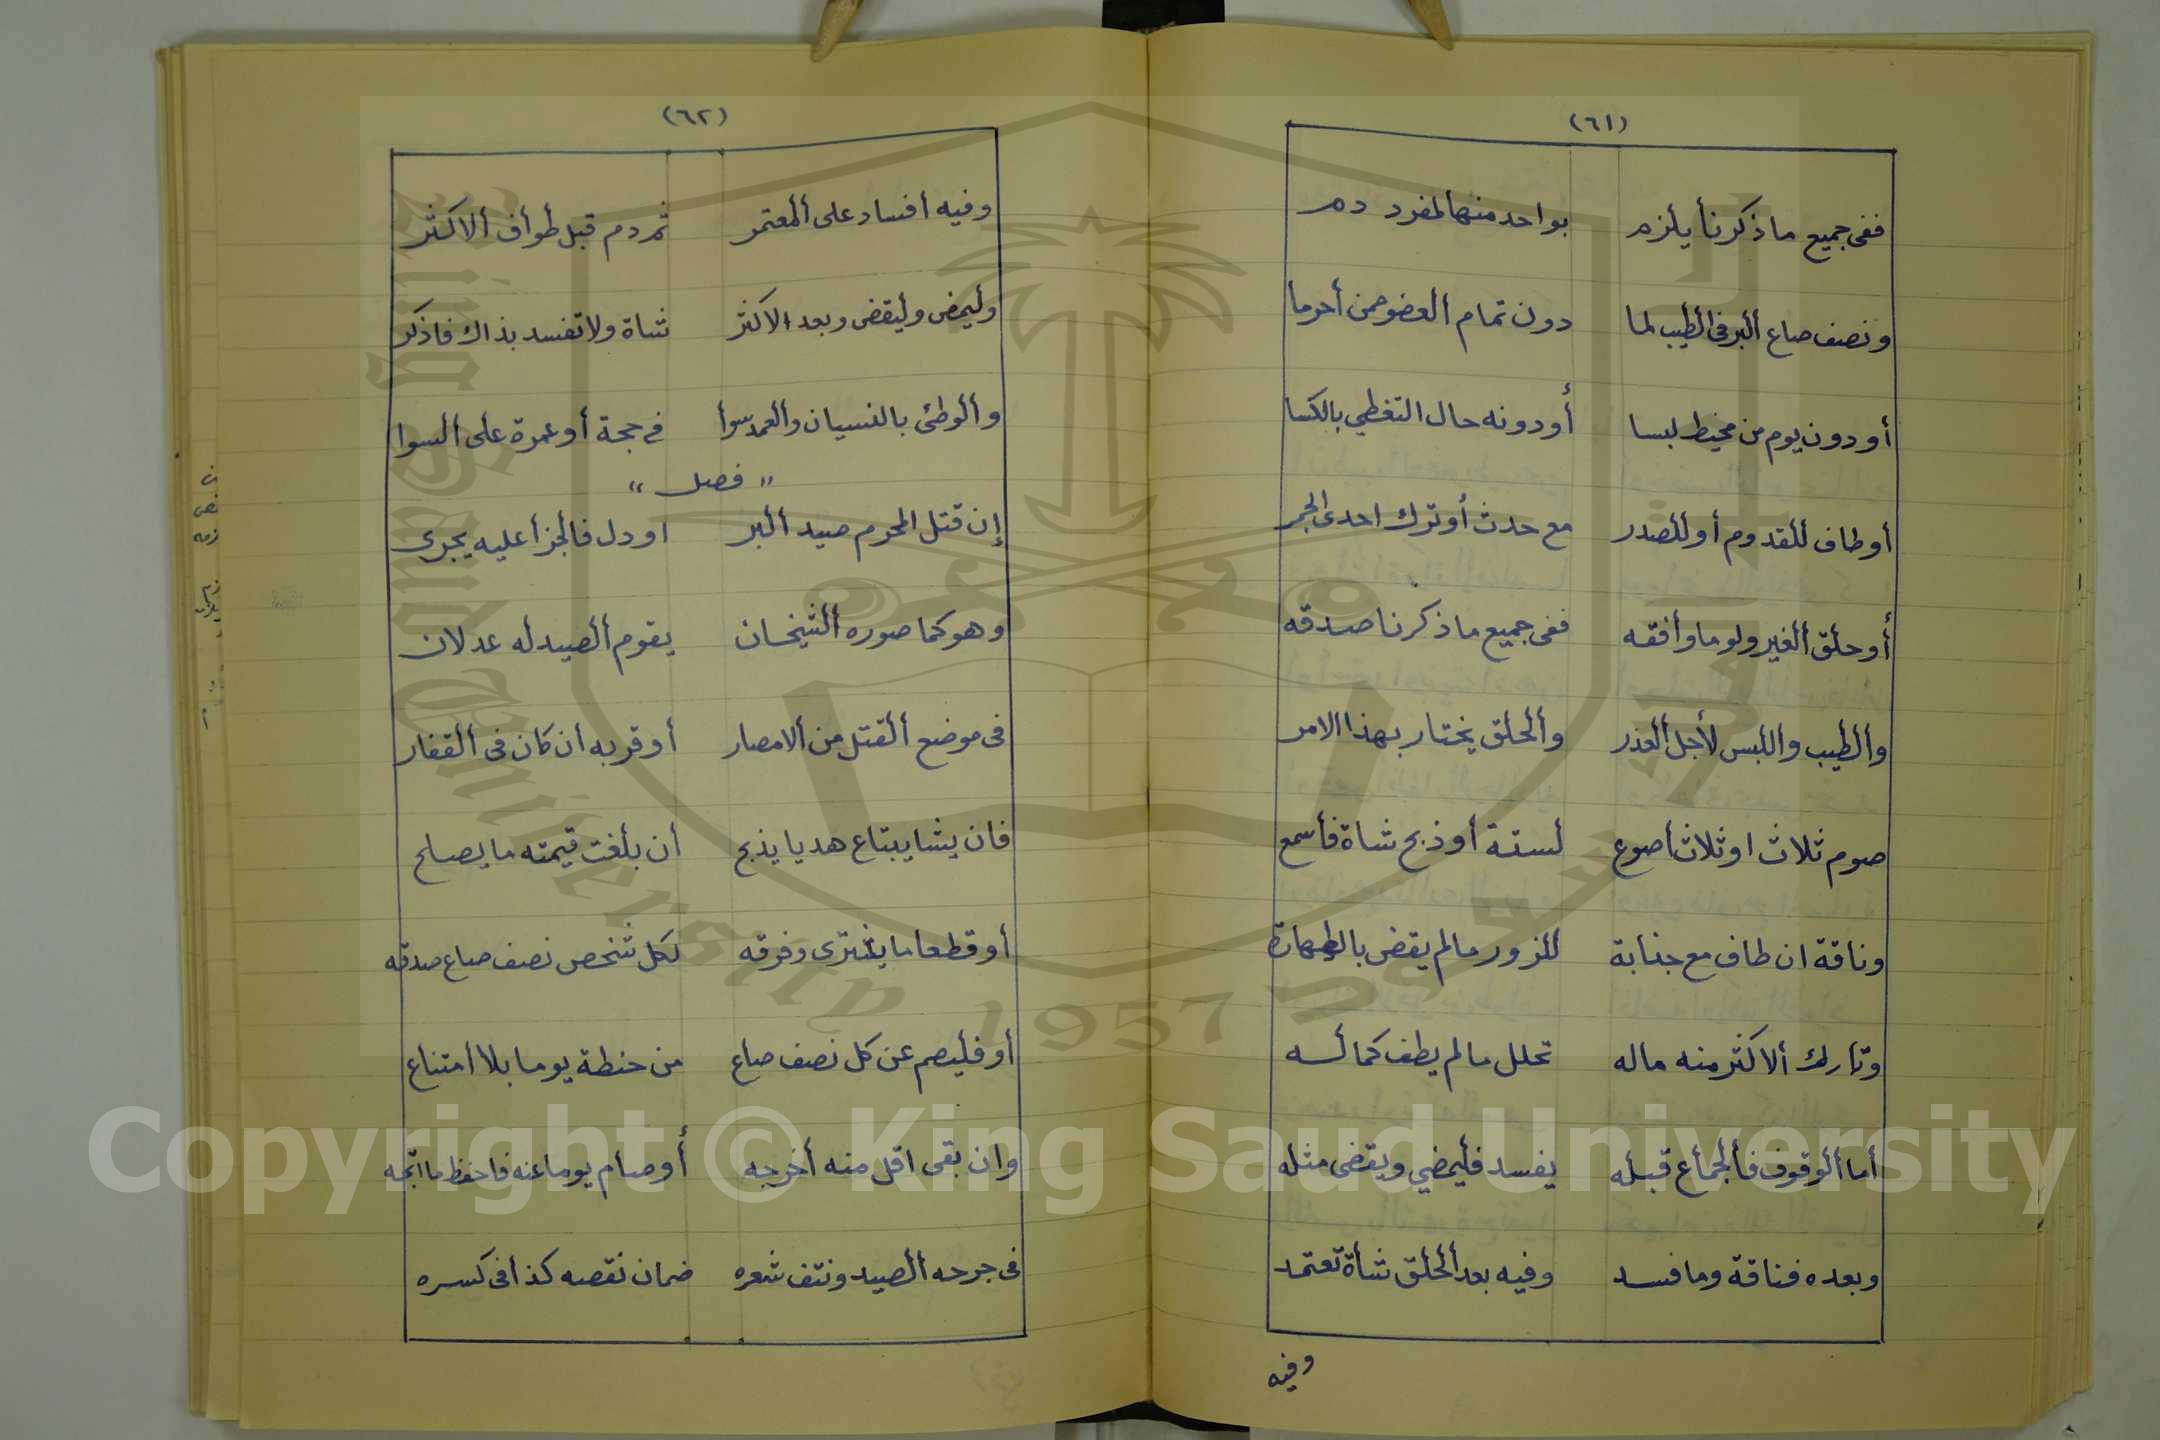 (٦١)
ففى جميع ما ذكرنا يلزم بواحد منها لمفرد دم
ونصف صاع البر فى الطيب لما دون تمام العضو من أحرما
أو دون يوم من مخيط لبسا أو دونه حال التغطي بالكسا
أو طاف للقدوم أو للصدر مع حدث أو ترك احدى الجمر
أو حلق الغير ولو ما وافقه ففى جميع ما ذكرنا صدقه
والطيب واللبس لأجل العذر والحلق يختار بهذا الامر
صوم ثلاث او ثلاث أصوع لستة أو ذبح شاة فأسمع
وناقة ان طاف مع جنابة للزور مالم يقض بالطهارة
وتارك الاكثر منه ماله تحلل مالم يطف كماله
أما الوقوف فالجماع قبله يفسد فليمضي ويقضى مثله
وبعده فناقة وما فسد وفيه بعد الحلق شاة تعتمد
وفيه
(٦٢)
وفيه افساد على المعتمر ثم دم قبل طواف الاكثر
وليمض وليقض وبعد الاكثر شاة ولا تفسد بذاك فاذكر
والوطئ بالنسيان والعمد سوا في حجة أو عمرة على السوا
" فصل "
إن قتل المحرم صيد البر او دل فالجزا عليه يجرى
وهو كما صوره الشيخان يقوم الصيد له عدلان
فى موضع القتل من الامصار أو قربه ان كان فى القفار
فان يشا يبتاع هديا يذبح أن بلغت قيمته ما يصلح
أو قطعاما يشترى وفرقه لكل شخص نصف صاع صدقه
أو فليصم عن كل نصف صاع من حنطة يوما بلا امتناع
وان بقى اقل منه أخرجه أو صام يوما عنه فاحفظ ما اتجه
فى جرحه الصيد ونتف شعره ضمان نقصه كذا فى كسره
Copyright © King Saud University
King Saud University
1957